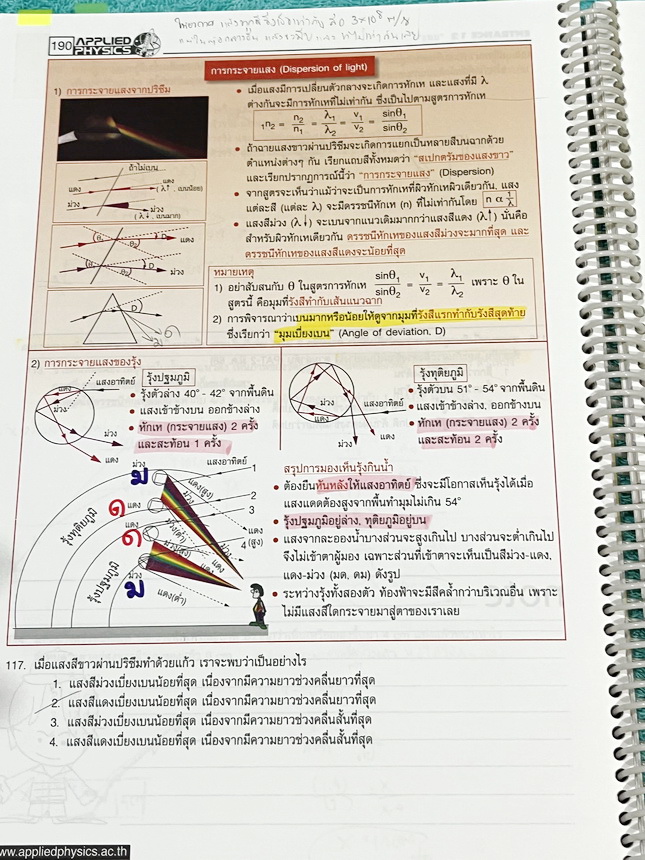 ในอากาศ แสงทุกสีวิ่งเร็วเท่ากัน คือ 3×10⁸ m/s
190 APPLIED PHYSICS
การกระจายแสง (Dispersion of light)
1) การกระจายแสงจากปริซึม
• เมื่อแสงมีการเปลี่ยนตัวกลางจะเกิดการหักเห และแสงที่มี λ
ต่างกันจะมีการหักเหที่ไม่เท่ากัน ซึ่งเป็นไปตามสูตรการหักเห
₁n₂ = n₂/n₁ = λ₁/λ₂ = v₁/v₂ = sinθ₁/sinθ₂
• ถ้าฉายแสงขาวผ่านปริซึมจะเกิดการแยกเป็นหลายสีบนฉากด้วย
ตำแหน่งต่างๆ กัน เรียกแถบสีทั้งหมดว่า "สเปกตรัมของแสงขาว"
และเรียกปรากฏการณ์นี้ว่า "การกระจายแสง" (Dispersion)
• จากสูตรจะเห็นว่าแม้ว่าจะเป็นการหักเหที่ผิวหักเหผิวเดียวกัน, แสง
แต่ละสี (แต่ละ λ) จะมีดรรชนีหักเห (n) ที่ไม่เท่ากันโดย n α 1/λ
• แสงสีม่วง (λ↓) จะเบนจากแนวเดิมมากกว่าแสงสีแดง (λ↑) นั่นคือ
สำหรับผิวหักเหเดียวกัน ดรรชนีหักเหของแสงสีม่วงจะมากที่สุด และ
ดรรชนีหักเหของแสงสีแดงจะน้อยที่สุด
ถ้าไม่เบน
แดง
แดง
(λ↑, เบนน้อย)
ม่วง
ม่วง
(λ↓, เบนมาก)
θ₁
θ₂
D
แดง
θ₁
θ₂
D
ม่วง
D
หมายเหตุ
1) อย่าสับสนกับ θ ในสูตรการหักเห sinθ₁/sinθ₂ = v₁/v₂ = λ₁/λ₂ เพราะ θ ใน
สูตรนี้ คือมุมที่รังสีทำกับเส้นแนวฉาก
2) การพิจารณาว่าเบนมากหรือน้อยให้ดูจากมุมที่รังสีแรกทำกับรังสีสุดท้าย
ซึ่งเรียกว่า "มุมเบี่ยงเบน" (Angle of deviation, D)
2) การกระจายแสงของรุ้ง
แสงอาทิตย์
แดง
ม่วง
ม่วง
แดง
รุ้งปฐมภูมิ
• รุ้งตัวล่าง 40° - 42° จากพื้นดิน
• แสงเข้าข้างบน ออกข้างล่าง
• หักเห (กระจายแสง) 2 ครั้ง
และสะท้อน 1 ครั้ง
ม่วง
แดง
แสงอาทิตย์
ม่วง
แดง
รุ้งทุติยภูมิ
• รุ้งตัวบน 51° - 54° จากพื้นดิน
• แสงเข้าข้างล่าง, ออกข้างบน
• หักเห (กระจายแสง) 2 ครั้ง
และสะท้อน 2 ครั้ง
ม่วง
แสงอาทิตย์
1
ม
แดง(สูง)
ม่วง
2
ด
แดง
3
ด
แดง
ม่วง(ต่ำ)
ม่วง(สูง)
4 (สูง)
แดง
ม่วง
ม
แดง(ต่ำ)
รุ้งทุติยภูมิ
รุ้งปฐมภูมิ
สรุปการมองเห็นรุ้งกินน้ำ
• ต้องยืนหันหลังให้แสงอาทิตย์ ซึ่งจะมีโอกาสเห็นรุ้งได้เมื่อ
แสงแดดต้องสูงจากพื้นทำมุมไม่เกิน 54°
• รุ้งปฐมภูมิอยู่ล่าง, ทุติยภูมิอยู่บน
• แสงจากละอองน้ำบางส่วนจะสูงเกินไป บางส่วนจะต่ำเกินไป
จึงไม่เข้าตาผู้มอง เฉพาะส่วนที่เข้าตาจะเห็นเป็นสีม่วง-แดง,
แดง-ม่วง (มด, ดม) ดังรูป
• ระหว่างรุ้งทั้งสองตัว ท้องฟ้าจะมีสีคล้ำกว่าบริเวณอื่น เพราะ
ไม่มีแสงสีใดกระจายมาสู่ตาของเราเลย
117. เมื่อแสงสีขาวผ่านปริซึมทำด้วยแก้ว เราจะพบว่าเป็นอย่างไร
1. แสงสีม่วงเบี่ยงเบนน้อยที่สุด เนื่องจากมีความยาวช่วงคลื่นยาวที่สุด
2. แสงสีแดงเบี่ยงเบนน้อยที่สุด เนื่องจากมีความยาวช่วงคลื่นยาวที่สุด
3. แสงสีม่วงเบี่ยงเบนน้อยที่สุด เนื่องจากมีความยาวช่วงคลื่นสั้นที่สุด
4. แสงสีแดงเบี่ยงเบนน้อยที่สุด เนื่องจากมีความยาวช่วงคลื่นสั้นที่สุด
www.appliedphysics.ac.th